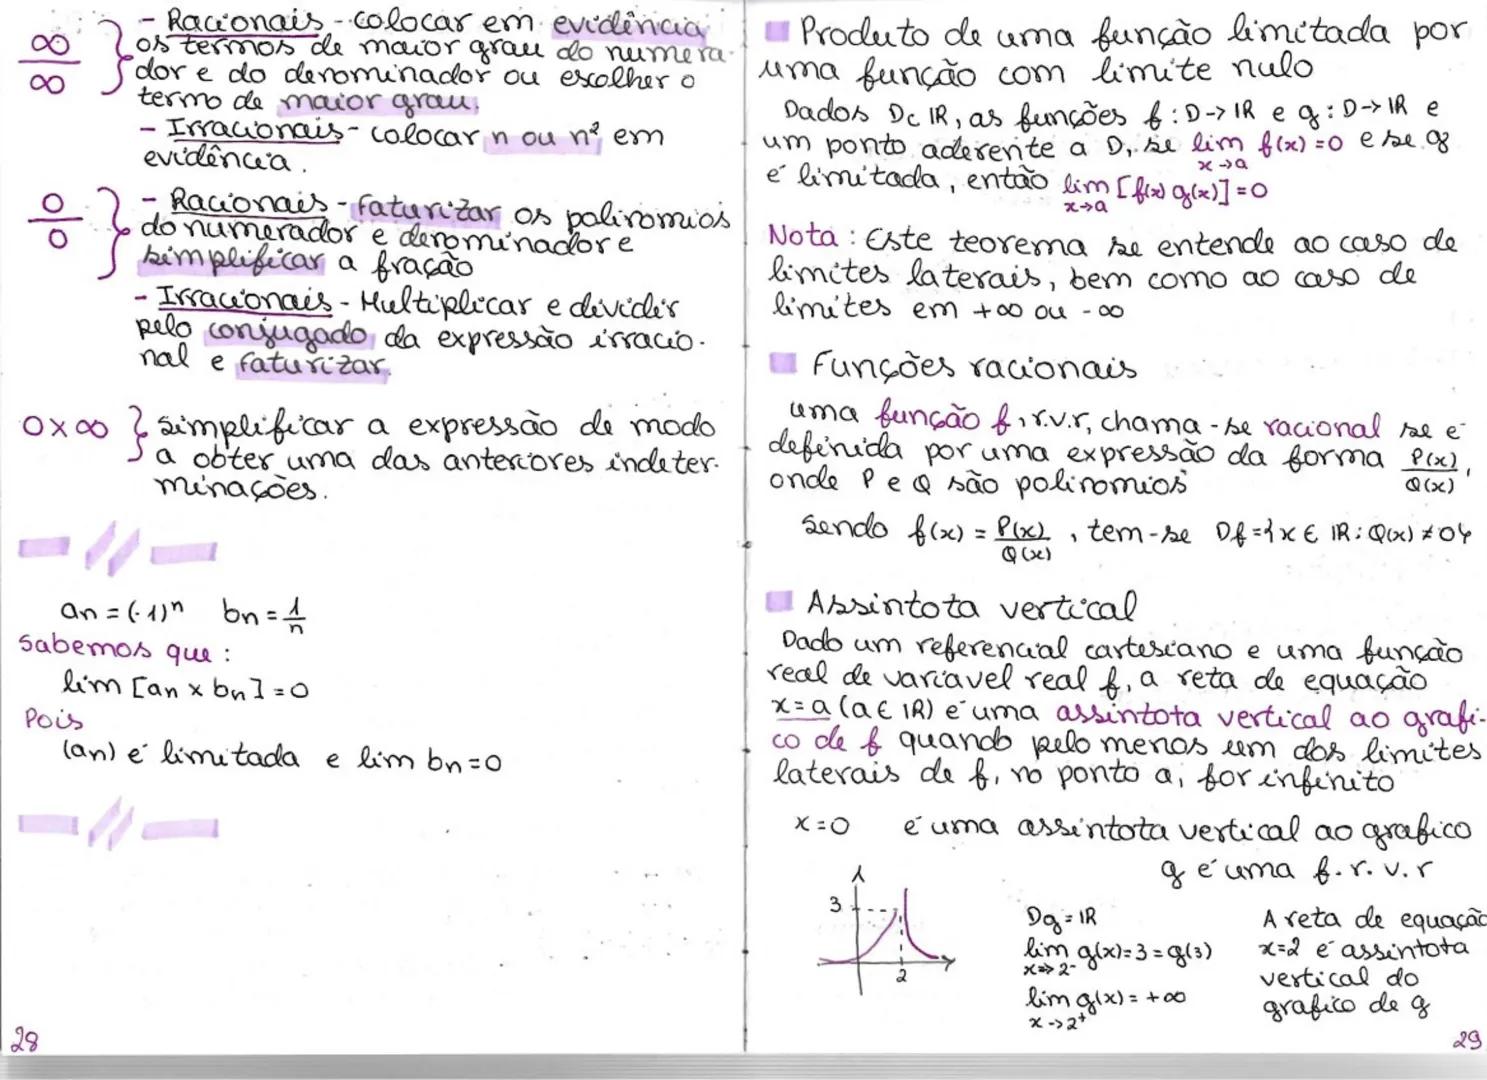 ∞/∞ } - Racionais - colocar em evidência
os termos de maior grau do numera-
dor e do denominador ou escolher o
termo de maior grau.
- Irracionais - colocar n ou n² em
evidência.
0/0 } - Racionais - faturizar os polinomios
do numerador e denominador e
simplificar a fração
- Irracionais - Multiplicar e dividir
pelo conjugado da expressão irracio-
nal e faturizar.
0x∞ } simplificar a expressão de modo
a obter uma das anteriores indeter-
minações.
an = (-1)ⁿ bn = 1/n
Sabemos que :
lim [an x bn] = 0
Pois
(an) é limitada e lim bn = 0
28
Produto de uma função limitada por
uma função com limite nulo
Dados D⊂ IR, as funções f : D -> IR e g : D -> IR e
um ponto aderente a D, se lim x->a f(x) = 0 e se g
é limitada, então lim x->a [f(x) g(x)] = 0
Nota : Este teorema se entende ao caso de
limites laterais, bem como ao caso de
limites em +∞ ou -∞
Funções racionais
uma função f, r.v.r, chama-se racional se é
definida por uma expressão da forma P(x)/Q(x),
onde P e Q são polinomios
Sendo f(x) = P(x)/Q(x) , tem-se Df = {x ∈ IR : Q(x) ≠ 0}
Assintota vertical
Dado um referencial cartesiano e uma função
real de variavel real f, a reta de equação
x = a (a ∈ IR) é uma assintota vertical ao grafi-
co de f quando pelo menos um dos limites
laterais de f, no ponto a, for infinito
x = 0 é uma assintota vertical ao grafico
g é uma f. r. v. r
3
2
Dg = IR
lim x->2⁻ g(x) = 3 = g(3)
lim x->2⁺ g(x) = +∞
A reta de equação
x=2 é assintota
vertical do
grafico de g
29